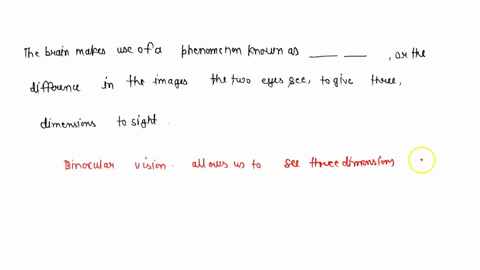 The brain makes use of a phenomenon known as ___ ___ , or the
difference in the images the two eyes see, to give three,
dimensions to sight.
Binocular vision. allows us to see three dimensions